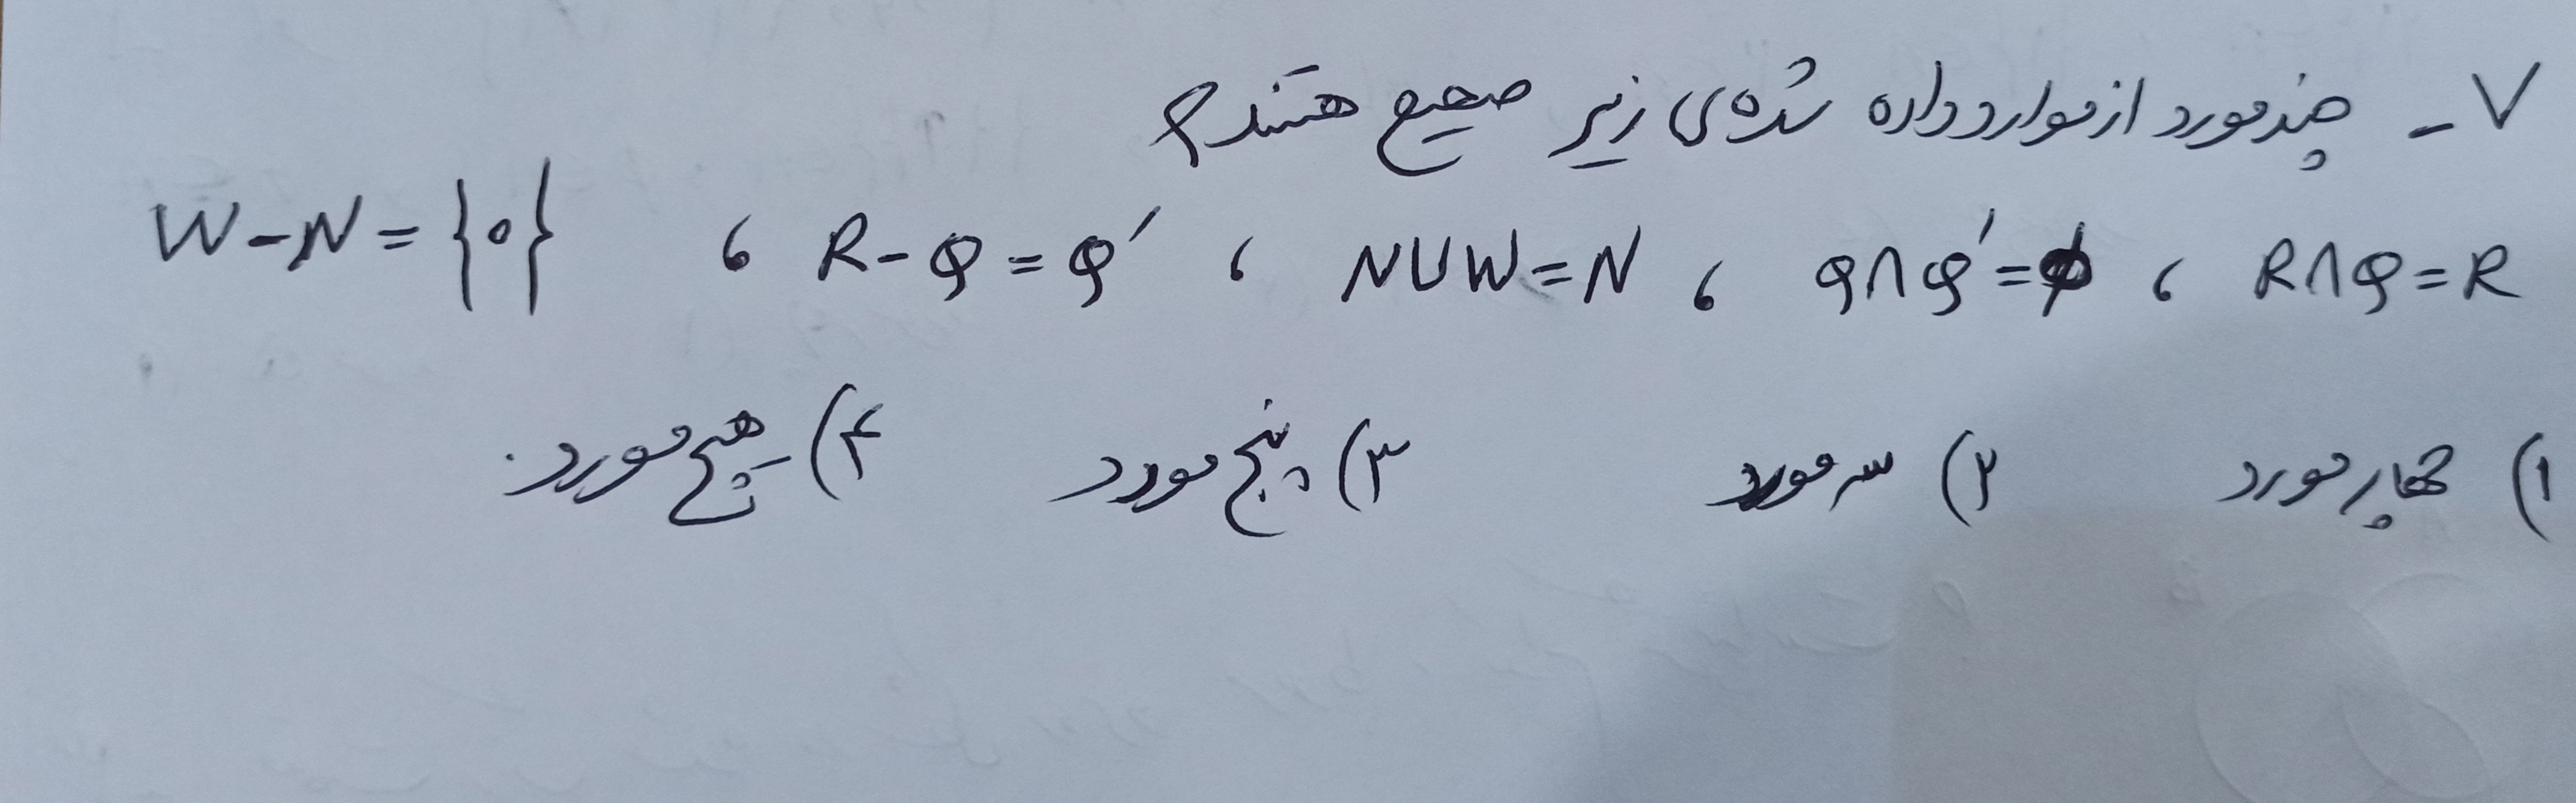 ۷- چند مورد از موارد داده شده‌ی زیر صحیح هستند؟
R∩Q=R ، Q∩Q′=∅ ، N∪W=N ، R-Q=Q′ ، W-N={۰}
۱) چهار مورد ۲) سه مورد ۳) پنج مورد ۴) هیچ مورد.